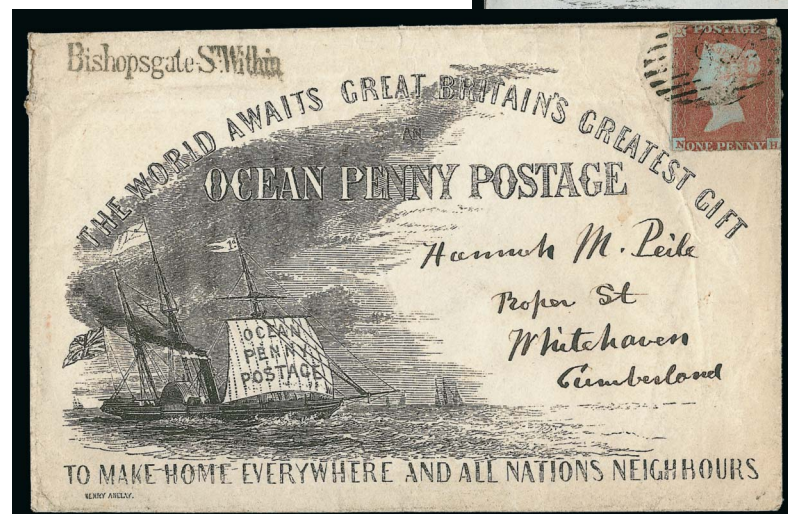 Bishopsgate St. Within
POSTAGE
N ONE PENNY H
THE WORLD AWAITS GREAT BRITAIN'S GREATEST GIFT
AN
OCEAN PENNY POSTAGE
Hannah M. Peile
Roper St
Whitehaven
Cumberland
1d
OCEAN
PENNY
POSTAGE
TO MAKE HOME EVERYWHERE AND ALL NATIONS NEIGHBOURS
HENRY ANELAY.